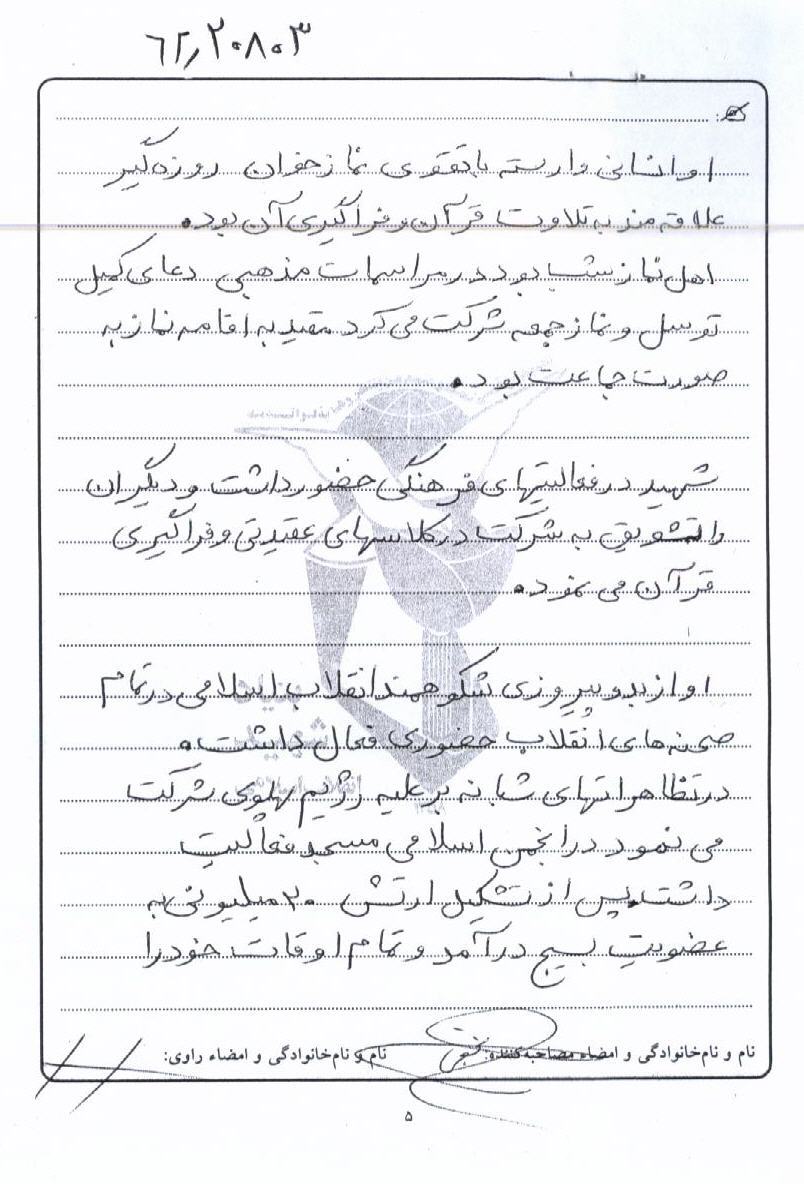 ۶۲,۲۰۸۰۳
او انسانی وارسته باتقوی نماز خوان روزه گیر
علاقه مند به تلاوت قرآن و فراگیری آن بود.
اهل نماز شب بود در مراسمات مذهبی دعای کمیل
توسل و نماز جمعه شرکت می کرد مقید به اقامه نماز به
صورت جماعت بود.
شهید در فعالیتهای فرهنگی حضور داشت و دیگران
را تشویق به شرکت در کلاسهای عقیدتی و فراگیری
قرآن می نمود.
او از بدو پیروزی شکوهمند انقلاب اسلامی در تمام
صحنه های انقلاب حضوری فعال داشت.
در تظاهراتهای شبانه بر علیه رژیم پهلوی شرکت
می نمود در انجمن اسلامی مسجد فعالیت
داشت پس از تشکیل ارتش ۲۰ میلیونی به
عضویت بسیج درآمد و تمام اوقات خود را
نام و نام خانوادگی و امضاء مصاحبه کننده: نام و نام خانوادگی و امضاء راوی:
۵